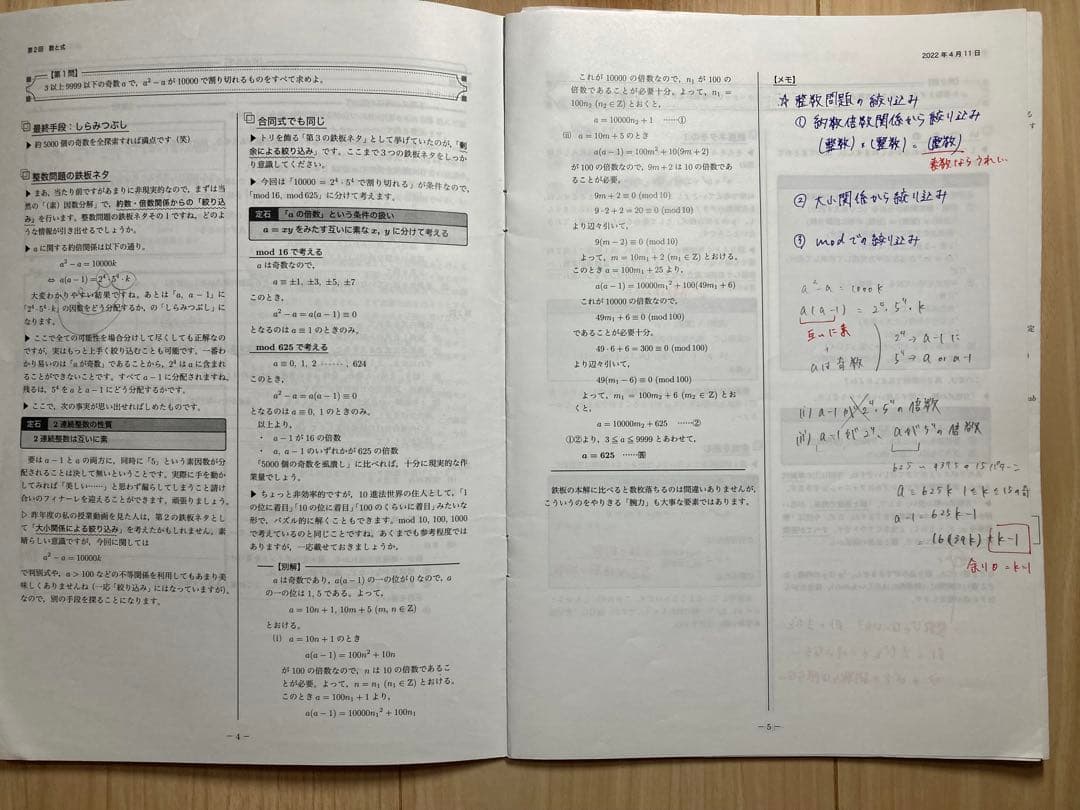 第2回 数と式
【第1問】
3以上9999以下の奇数aで、a²−aが10000で割り切れるものをすべて求めよ。
最終手段：しらみつぶし
▶ 約5000個の奇数を全探索すれば満点です（笑）
整数問題の鉄板ネタ
▶ まあ、当たり前ですがあまりに非現実的なので、まずは当
然の「（素）因数分解」で、約数・倍数関係からの「絞り込
み」を行います。整数問題の鉄板ネタその1ですね。どのよ
うな情報が引き出せるでしょうか。
▶ aに関する約倍関係は以下の通り。
a²−a＝10000k
⇔ a(a−1)＝2⁴·5⁴·k
大変わかりやすい結果ですね。あとは「a, a−1」に
「2⁴·5⁴·k」の因数をどう分配するか、の「しらみつぶし」に
なります。
▶ ここで全ての可能性を場合分けして尽くしても正解なの
ですが、実はもっと上手く絞り込むことも可能です。一番わ
かり易いのは「aが奇数」であることから、2⁴はaに含まれ
ることができないことです。すべてa−1に分配されますね。
残るは、5⁴をaとa−1にどう分配するかです。
▶ ここで、次の事実が思い出せればしめたものです。
定石 2連続整数の性質
2連続整数は互いに素
要はa−1とaの両方に、同時に「5」という素因数が分
配されることは決して無いということです。実際に手を動か
してみれば「美しい……」と思わず漏らしてしまうこと請け
合いのフィナーレを迎えることができます。頑張りましょう。
▷ 昨年度の私の授業動画を見た人は、第2の鉄板ネタとし
て「大小関係による絞り込み」を考えたかもしれません。素
晴らしい意識ですが、今回に関しては
a²−a＝10000k
で判別式や、a＞100などの不等関係を利用してもあまり美
味しくありませんね（一応「絞り込み」にはなっていますが）。
なので、別の手段を探ることになります。
合同式でも同じ
▶ トリを飾る「第3の鉄板ネタ」として挙げていたのが、「剰
余による絞り込み」です。ここまで3つの鉄板ネタをしっか
り意識してください。
▶ 今回は「10000＝2⁴·5⁴で割り切れる」が条件なので、
「mod 16, mod 625」に分けて考えます。
定石 「aの倍数」という条件の扱い
a＝xyをみたす互いに素なx, yに分けて考える
mod 16で考える
aは奇数なので、
a≡±1, ±3, ±5, ±7
このとき、
a²−a＝a(a−1)≡0
となるのはa≡1のときのみ。
mod 625で考える
a≡0, 1, 2 ……, 624
このとき、
a²−a＝a(a−1)≡0
となるのはa≡0, 1のときのみ。
以上より、
・ a−1が16の倍数
・ a, a−1のいずれかが625の倍数
「5000個の奇数を虱潰し」に比べれば、十分に現実的な作
業量でしょう。
▶ ちょっと非効率的ですが、10進法世界の住人として、「1
の位に着目」「10の位に着目」「100のくらいに着目」みたいな
形で、パズル的に解くこともできます。mod 10, 100, 1000
で考えているのと同じことですね。あくまでも参考程度では
ありますが、一応載せておきましょうか。
【別解】
aは奇数であり、a(a−1)の一の位が0なので、a
の一の位は1, 5である。よって、
a＝10n＋1, 10m＋5 (m, n∈Z)
とおける。
(i) a＝10n＋1のとき
a(a−1)＝100n²＋10n
が100の倍数なので、nは10の倍数であるこ
とが必要。よって、n＝n₁ (n₁∈Z)とおける。
このときa＝100n₁＋1より、
a(a−1)＝10000n₁²＋100n₁
−4−
これが10000の倍数なので、n₁が100の
倍数であることが必要十分。よって、n₁＝
100n₂ (n₂∈Z)とおくと、
a＝10000n₂＋1 ……①
(ii) a＝10m＋5のとき
a(a−1)＝100m²＋10(9m＋2)
が100の倍数なので、9m＋2は10の倍数であ
ることが必要。
9m＋2≡0 (mod 10)
9·2＋2＝20≡0 (mod 10)
より辺々引いて、
9(m−2)≡0 (mod 10)
よって、m＝10m₁＋2 (m₁∈Z)とおける。
このときa＝100m₁＋25より、
a(a−1)＝10000m₁²＋100(49m₁＋6)
これが10000の倍数なので、
49m₁＋6≡0 (mod 100)
であることが必要十分。
49·6＋6＝300≡0 (mod 100)
より辺々引いて、
49(m₁−6)≡0 (mod 100)
よって、m₁＝100m₂＋6 (m₂∈Z)とお
くと、
a＝10000m₂＋625 ……②
①②より、3≦a≦9999とあわせて、
a＝625 ……答
鉄板の本解に比べると数枚落ちるのは間違いありませんが、
こういうのをやりきる「腕力」も大事な要素ではあります。
2022年4月11日
【メモ】
☆ 整数問題の絞り込み
① 約数倍数関係から絞り込み
(整数)×(整数)＝(整数)
素数ならうれしい
② 大小関係から絞り込み
③ modでの絞り込み
a²−a＝1000k
a(a−1)＝2⁴·5⁴·k
互いに素
+
aは奇数
2⁴→a−1に
5⁴→a or a−1
(i) a−1が2⁴·5⁴の倍数
(ii) a−1が2⁴、aが5⁴の倍数
625〜9375の15パターン
a＝625k 1≦k≦15の奇
a−1＝625k−1
＝16(39k)+k−1
余り0＝k−1
−5−